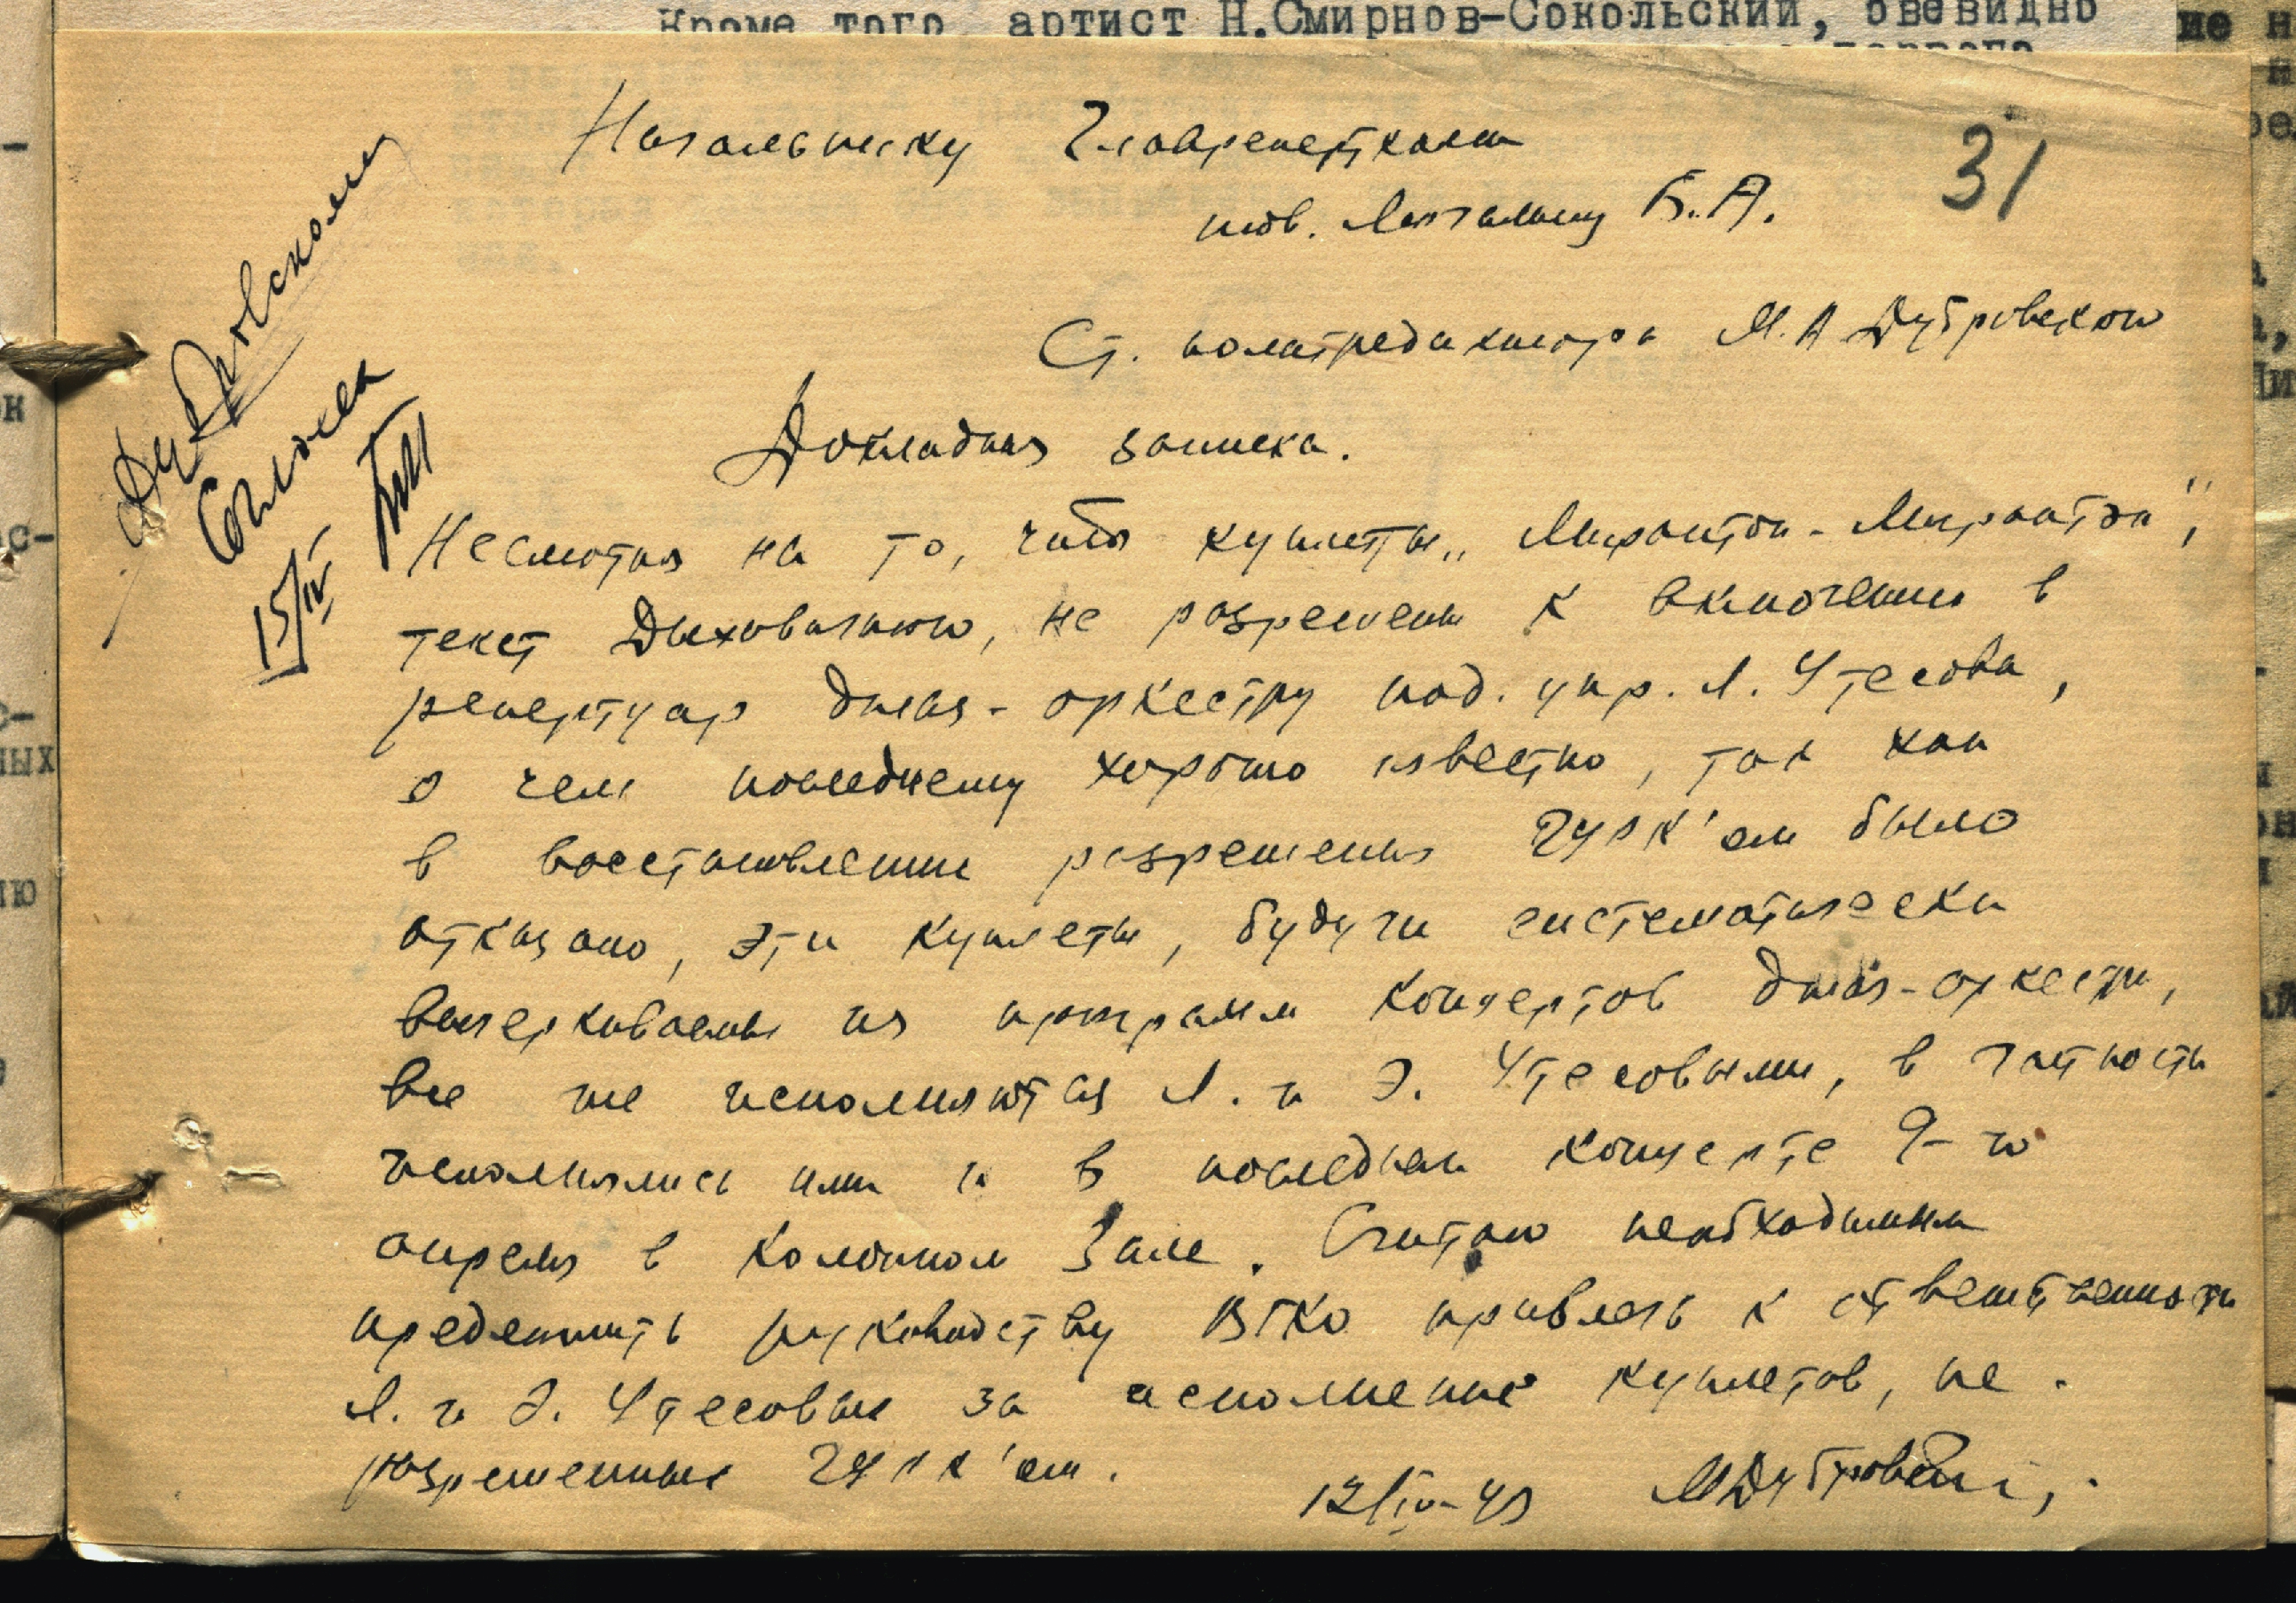 Кроме того артист Н.Смирнов-Сокольский, овевидно
Начальнику Главреперткома
31
тов. Мочалину Б.А.
Ст. политредактора М.А Дубровского
Докладная записка.
Дубровскому
Согласен
15/IV
Несмотря на то, что куплеты „Мирантон-Мирантон",
текст Дыховичного, не разрешены к включению в
репертуар джаз-оркестру под. упр. Л. Утесова,
о чем последнему хорошо известно, так как
в восстановлении разрешения ГУРК'ом было
отказано, эти куплеты, будучи систематически
вычеркиваемы из программ концертов джаз-оркестра,
все же исполняются Л. и Э. Утесовыми, в частности
исполнялись ими и в последнем концерте 9-го
апреля в Колонном Зале. Считаю необходимым
предложить руководству ВГКО привлечь к ответственности
Л. и Э. Утесовых за исполнение куплетов, не
разрешенных ГУРК'ом.
12/IV-43 МДубровский